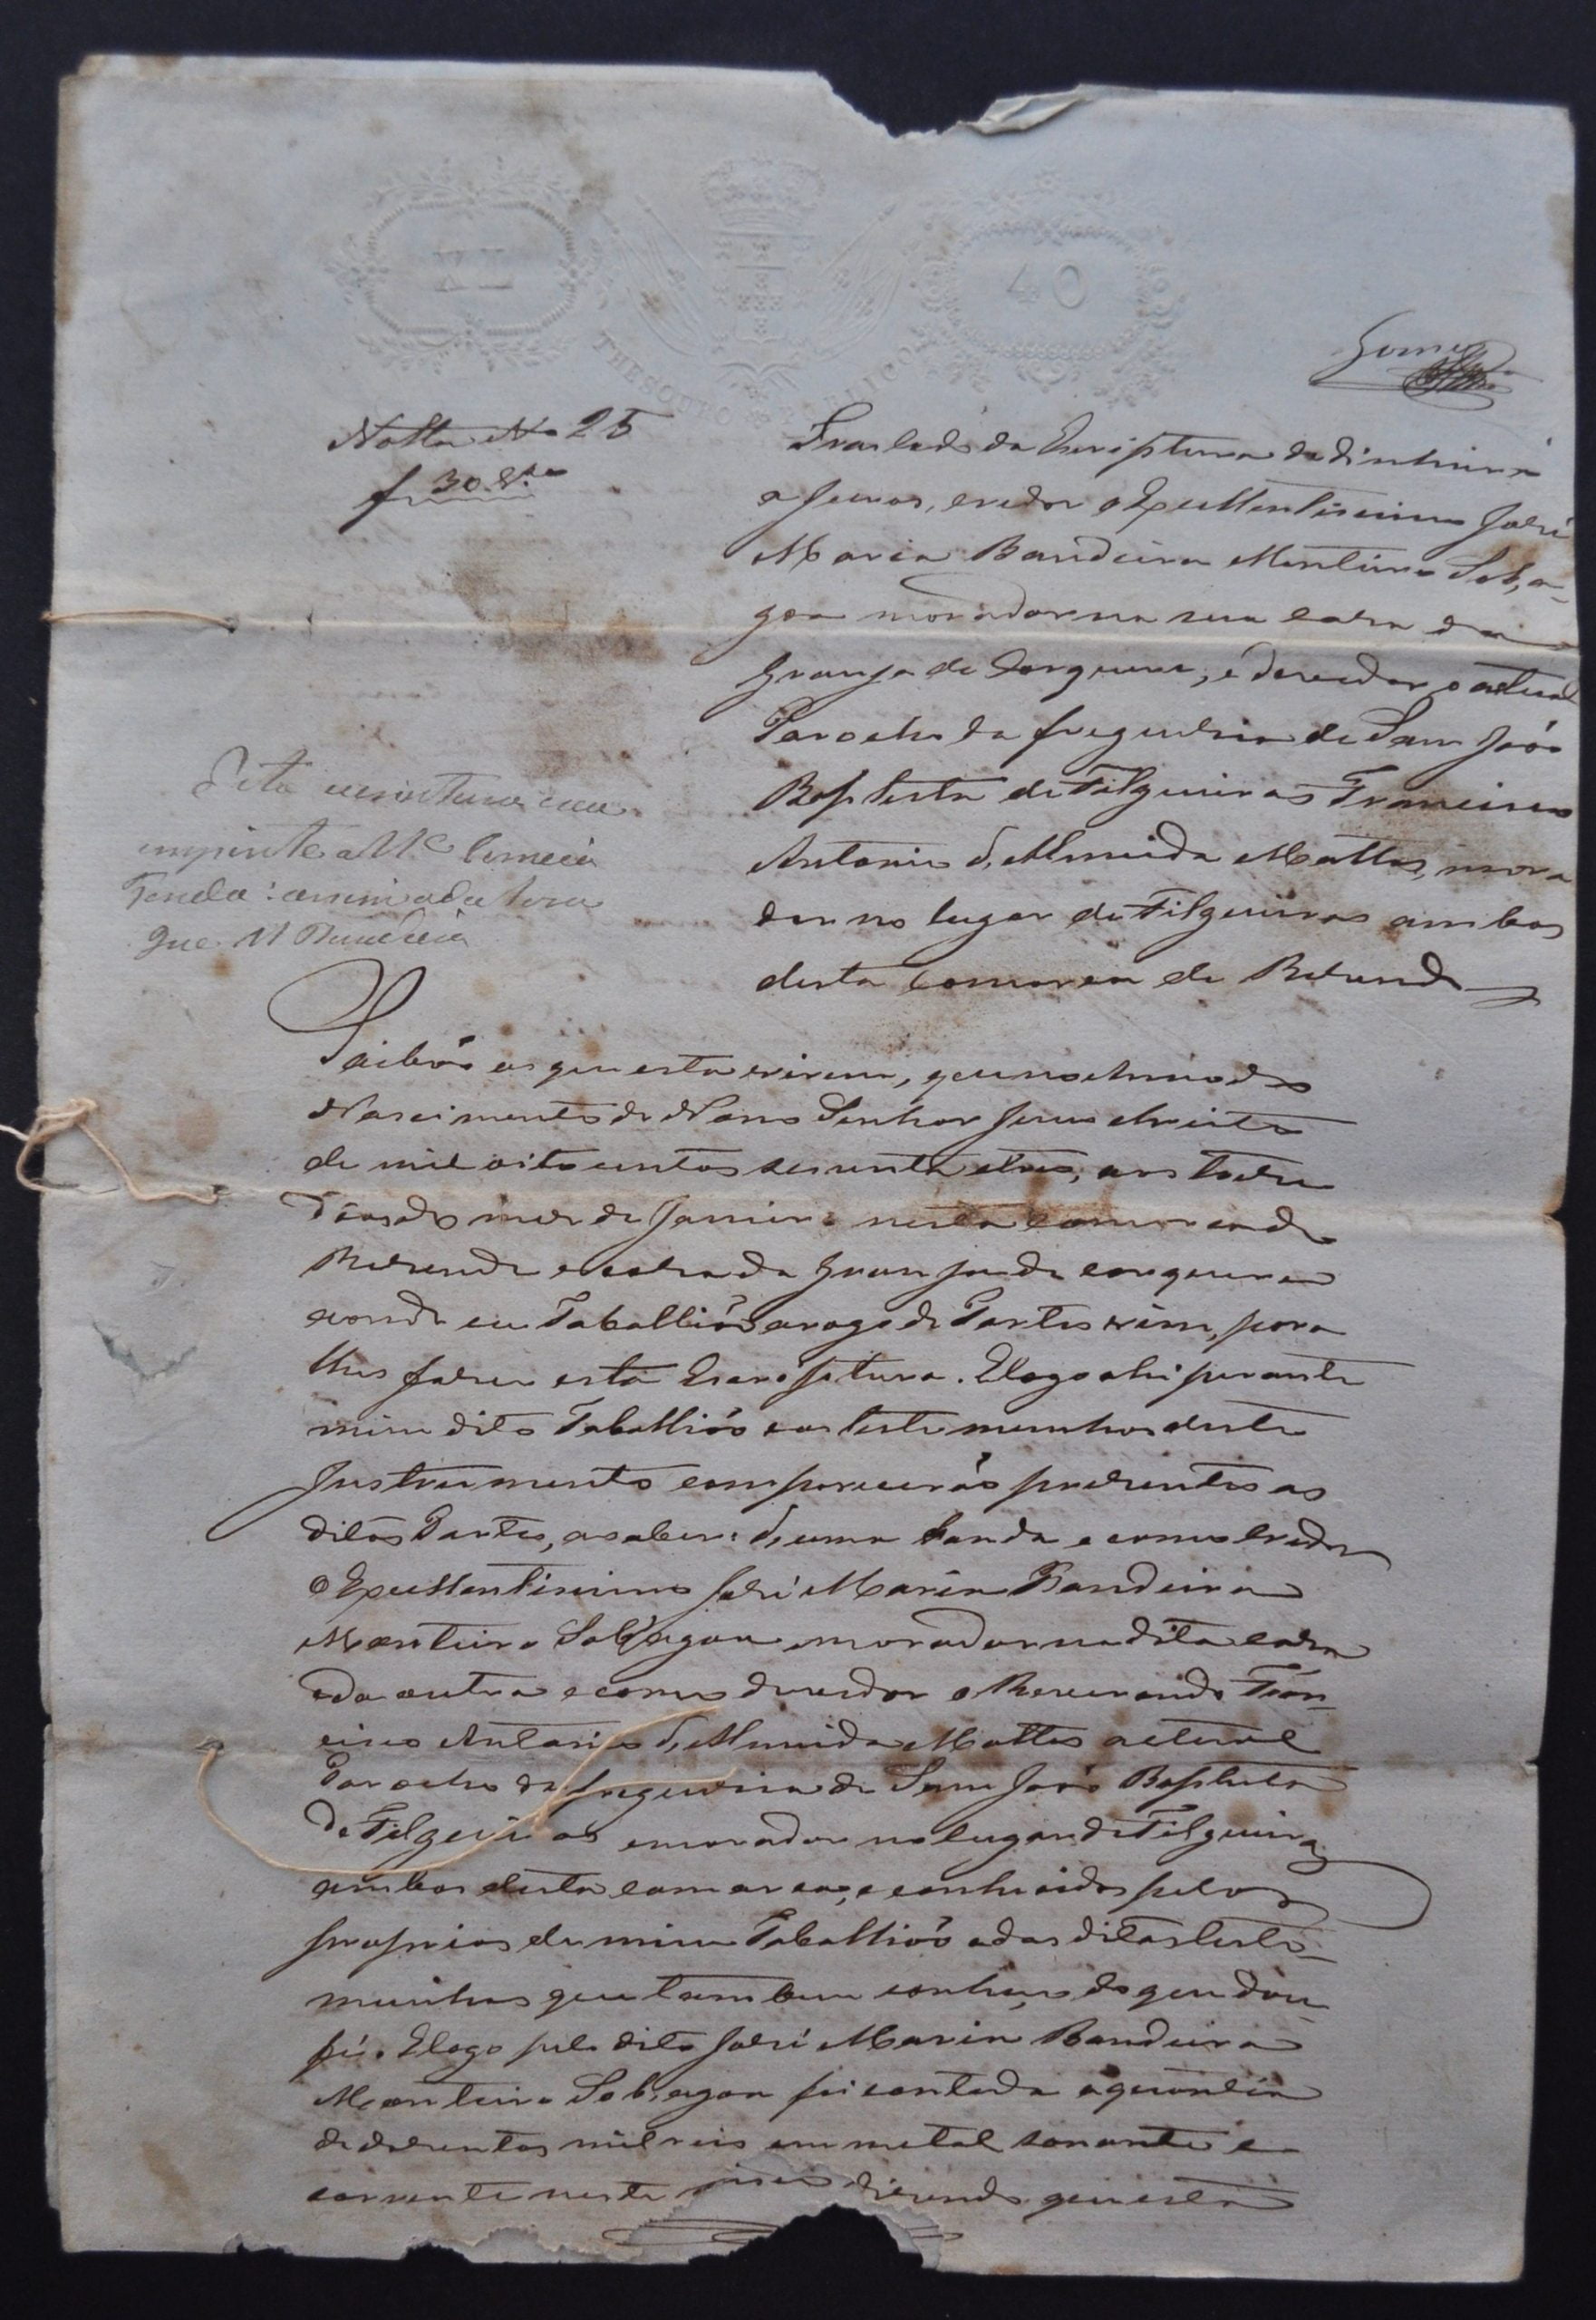 XL
40
THESOURO PUBLICO
Gomes
Notta No 25
f 30 v.
Traslado da Escriptura de dinheiro
a juros, credor o Excellentissimo José
Maria Bandeira Monteiro Sub,a-
goa morador na sua casa da
Granja de Cerqueira, e devedor o actual
Parocho da freguezia de Sam João
Baptista de Filgueiras Francisco
Antonio d,Almeida Mattos, mora
dor no lugar de Filgueiras ambos
desta Comarca de Rezende
Esta escriptura
pertence a
que
Saibão os que esta virem, que no Anno do
Nascimento de Nosso Senhor Jesus Christo
de mil oito centos sessenta e tres, aos treze
dias do mez de Janeiro nesta comarca de
Rezende e casa da Granja de Cerqueira
aonde eu Taballião a rogo de Partes vim, para
lhes fazer esta Escriptura. E logo ahi perante
mim dito Taballião e as testemunhas deste
Instrumento comparecerão prezentes as
ditas Partes, a saber: d,uma banda e como credor
o Excellentissimo José Maria Bandeira
Monteiro Sub,agoa morador na dita casa
e da outra e como devedor o Reverendo Fran-
cisco Antonio d,Almeida Mattos actual
Parocho da freguezia de Sam João Baptista
de Filgueiras e morador no lugar de Filgueiras
ambos desta comarca, e conhecidos pelos
proprios de mim Taballião e das ditas teste-
munhas que tambem conheço do que dou
fé. E logo pelo dito José Maria Bandeira
Monteiro Sub,agoa foi contada a quantia
de duzentos mil reis em metal sonante e
corrente neste reino dizendo que esta